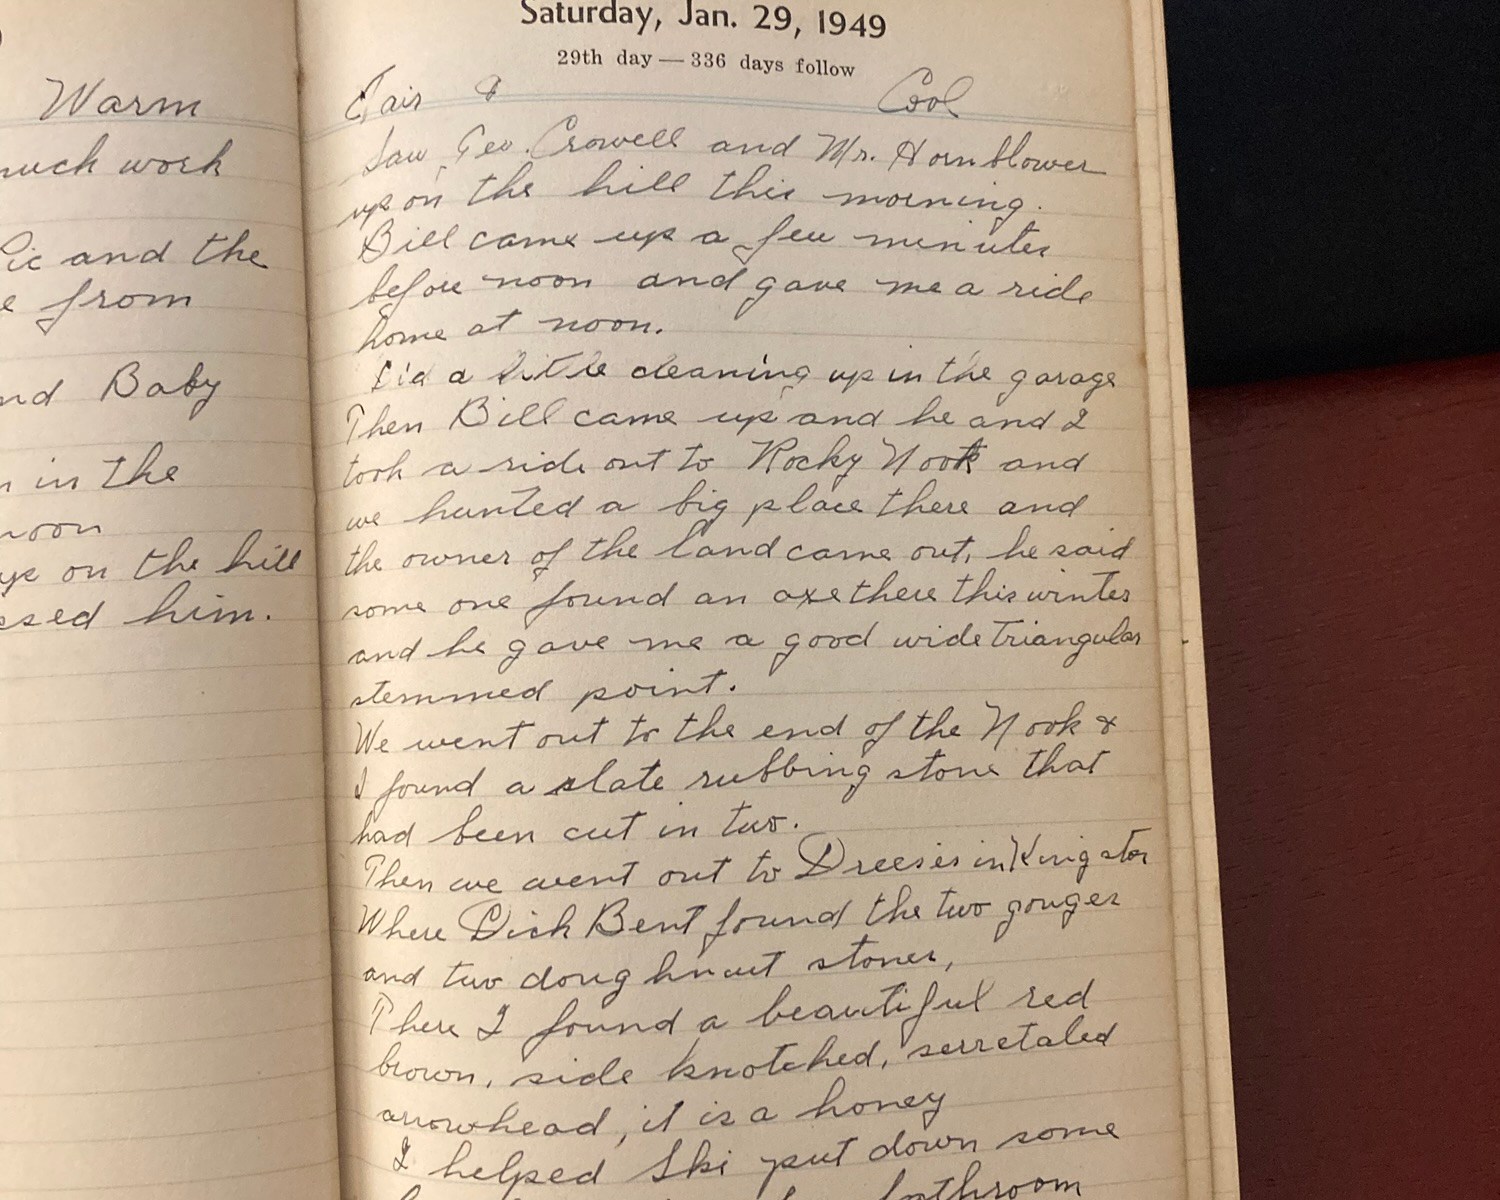 Warm
much work
Pic and the
e from
nd Baby
n in the
noon
up on the hill
ssed him.
Saturday, Jan. 29, 1949
29th day — 336 days follow
Fair & Cool
Saw Geo. Crowell and Mr. Hornblower
up on the hill this morning.
Bill came up a few minutes
before noon and gave me a ride
home at noon.
Did a little cleaning up in the garage
Then Bill came up and he and I
took a ride out to Rocky Nook and
we hunted a big place there and
the owner of the land came out, he said
some one found an axe there this winter
and he gave me a good wide triangular
stemmed point.
We went out to the end of the Nook &
I found a slate rubbing stone that
had been cut in two.
Then we went out to Dreeses in Kingston
Where Dick Bent found the two gouges
and two doughnut stones,
There I found a beautiful red
brown, side knotched, serretated
arrowhead, it is a honey
I helped Ski put down some
bathroom